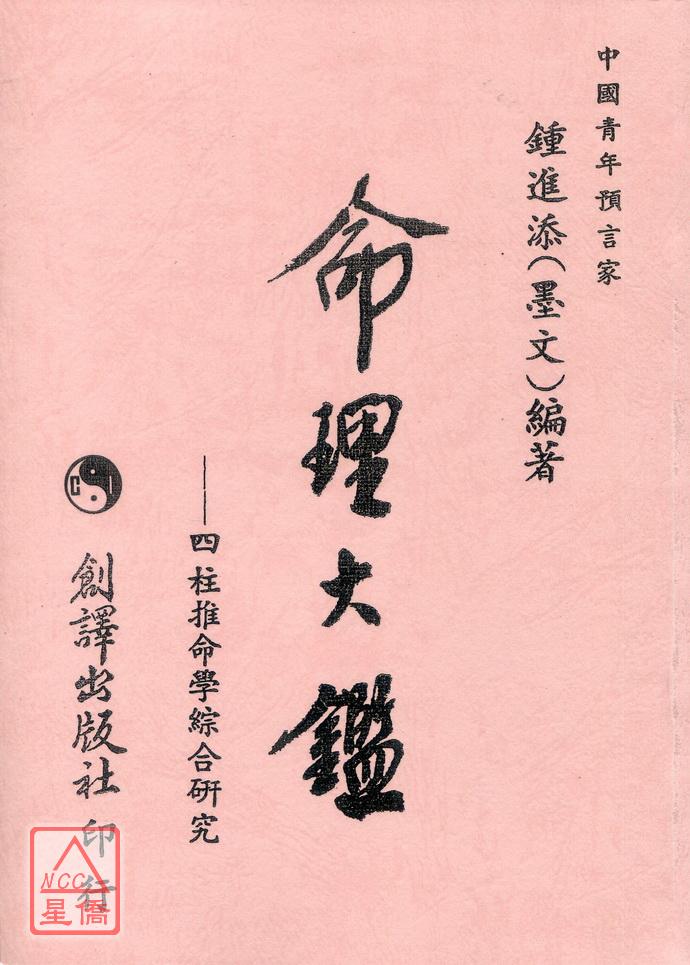 中國青年預言家
鍾進添(墨文)編著
命理大鑑
——四柱推命學綜合研究
C I
創譯出版社印行
NCC
星僑